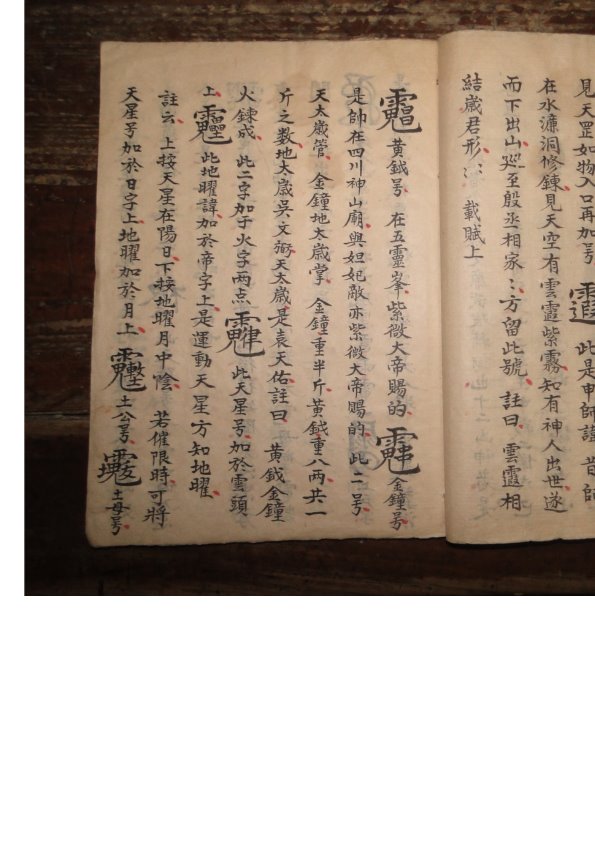 見天罡如物入口再加号 此是申師諱 昔師
在水濂洞修鍊見天空有雲霞紫霧知有神人出世遂
而下出山廵至殷丞相家〻方留此號 註曰 雲霞相
結歲君形〻 載賦上
黃鉞号 在五靈峯紫微大帝賜的 金鐘号
是帥在四川神山廟與妲妃敵亦紫微大帝賜的此二号
天太歲管 金鐘地太歲掌 金鐘重半斤黃鉞重八兩共一
斤之数地太歲吳文 天太歲是袁天佑註曰 黃鉞金鐘
火鍊成 此二字加于火字兩点 此天星号加於雲頭
上 此地曜諱加於帝字上是運動天星方知地曜
註云 上按天星在陽日下接地曜月中陰 若催限時可將
天星号加於日字上地曜加於月上 土公号 土母号